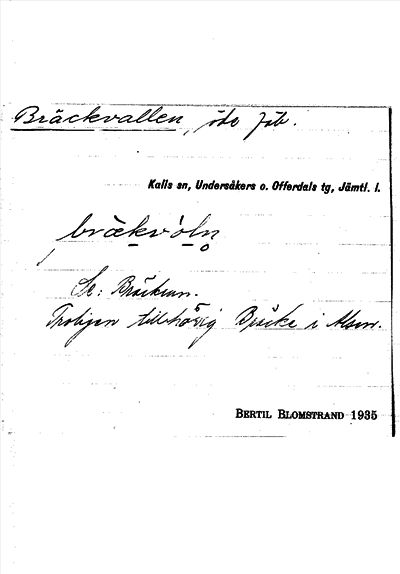 Bräckvallen, öde fäb.
Kalls sn, Undersåkers o. Offerdals tg, Jämtl. l.
brækvòln̥
Se: Bräckan.
Troligen tillhörig Bräcke i Alsen.
BERTIL BLOMSTRAND 1935